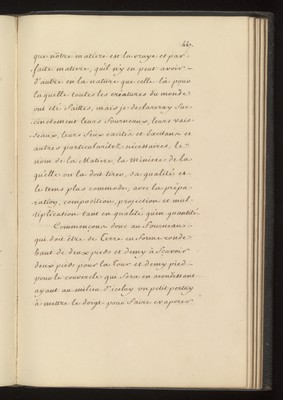 447.
que nôtre matiere est la vraye et par-
faite matiere, qu'il n'y en peut avoir
d'autre en la nature que celle là pour
laquelle toutes les créatures du monde
ont été faittes, mais je declareray suc-
cinctement leurs fourneaux, leurs vais-
seaux, leurs feux excités et
autres particularitéz nécessaires, le
nom de la Matiere, la miniere de la
quelle on la doit tirer, sa qualité et
le tems plus commode, avec la prépa-
ration, composition, projection et mul-
tiplication tant en qualité qu'en quantité.
Commencons donc au fourneau
qui doit être de terre en forme ronde
haut de deux pieds et demy à sçavoir
deux pieds pour la tour et demy pied
pour le couvercle que sera en arondissant
ayant au milieu d'iceluy un petit pertuy
à mettre le doigt pour faire evaporer